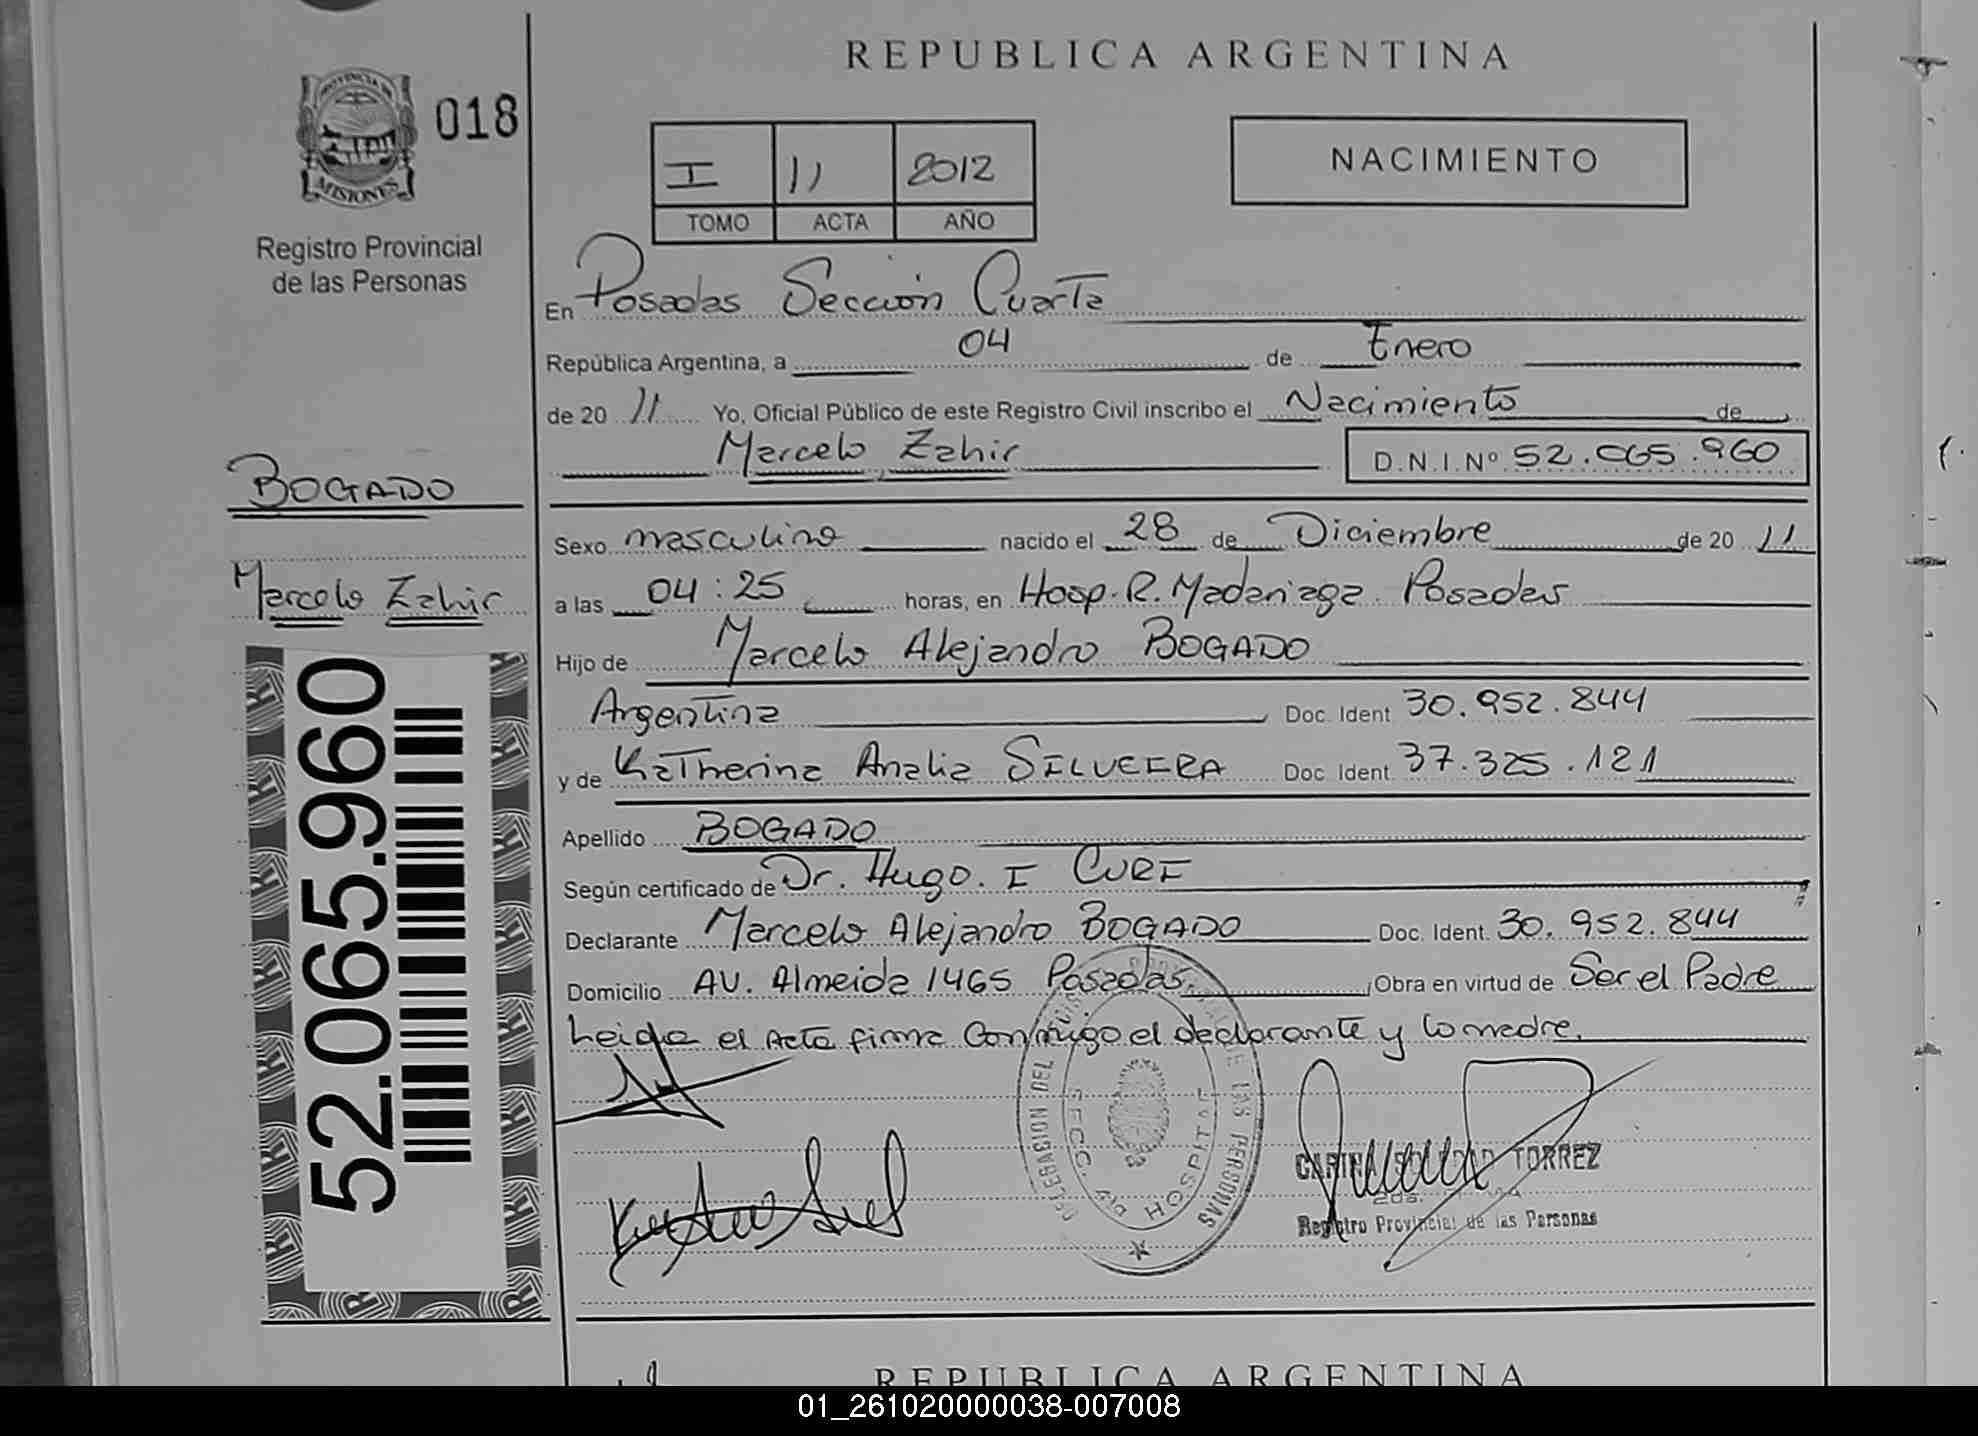 REPUBLICA ARGENTINA
018
PROVINCIA DE
MISIONES
Registro Provincial
de las Personas
I 11 2012
TOMO ACTA AÑO
NACIMIENTO
En Posadas Sección Cuarta
República Argentina, a 04 de Enero
de 20 11 Yo, Oficial Público de este Registro Civil inscribo el Nacimiento de
Marcelo Zahir D.N.I.Nº 52.065.960
BOGADO
Marcelo Zahir
52.065.960
Sexo masculino nacido el 28 de Diciembre de 20 11
a las 04:25 horas, en Hosp. R. Madariaga Posadas
Hijo de Marcelo Alejandro BOGADO
Argentina Doc. Ident 30.952.844
y de Katherina Analia SILVEIRA Doc Ident. 37.325.121
Apellido BOGADO
Según certificado de Dr. Hugo. I CURI
Declarante Marcelo Alejandro BOGADO Doc. Ident. 30.952.844
Domicilio AV. Almeida 1465 Posadas. Obra en virtud de Ser el Padre
Leida el Acta firma Conmigo el declarante y la madre.
DELEGACION DEL DE LAS PERSONAS
SECC. 4ta HOSPITAL
CARINA SOLEDAD TORREZ
Registro Provincial de las Personas
REPUBLICA ARGENTINA
01_261020000038-007008